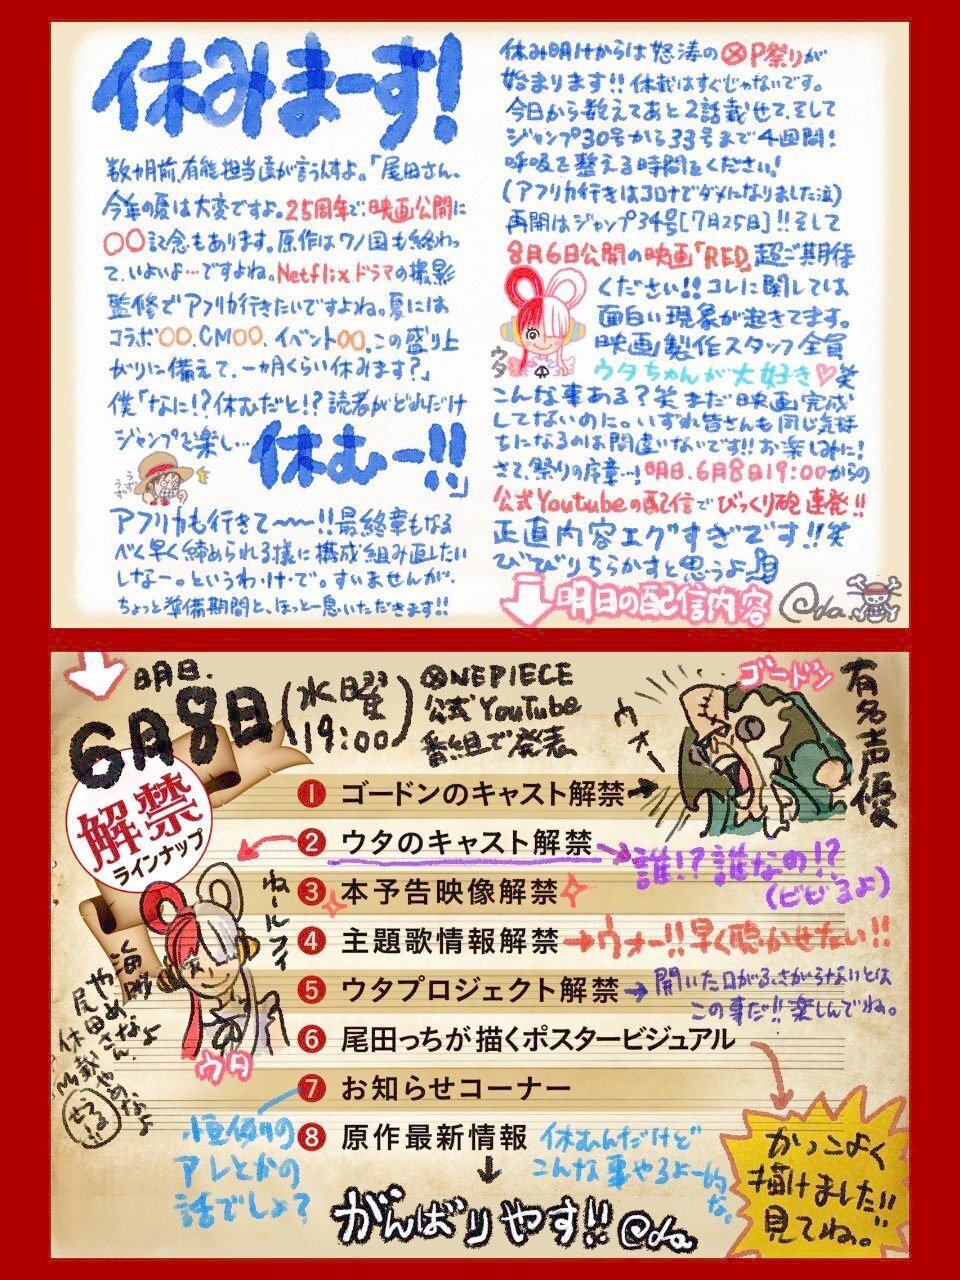 休みまーす!
数ヶ月前、有能担当達が言うんすよ。「尾田さん、
今年の夏は大変ですよ。25周年で、映画公開に
〇〇記念もあります。原作はワノ国も終わっ
て、いよいよ…ですよね。Netflixドラマの撮影
監修でアフリカ行きたいですよね。夏には
コラボ〇〇、CM〇〇、イベント〇〇、この盛り上
がりに備えて、一ヵ月くらい休みます?」
僕「なに!?休むだと!?読者がどれだけ
ジャンプを楽し…
休むー!!」
うずうず
アフリカも行きて〜〜!!最終章もなる
べく早く締められる様に構成組み直したい
しなー。というわ・け・で。すいませんが、
ちょっと準備期間と、ほっと一息いただきます!!
休み明けからは怒涛のⓍP祭りが
始まります!!休載はすぐじゃないです。
今日から数えてあと2話載せて、そして
ジャンプ30号から33号まで4週間!
呼吸を整える時間をください!
(アフリカ行きはコロナでダメになりました泣)
再開はジャンプ34号[7月25日]!!そして
8月6日公開の映画「RED」超ご期待
ください!!コレに関しては
面白い現象が起きてます。
映画製作スタッフ全員
ウタ
ウタちゃんが大好き♡笑
こんな事ある?笑 まだ映画完成
してないのに。いずれ皆さんも同じ気持
ちになるのは間違いないです!!お楽しみに!
さて、祭りの序章…!明日、6月8日19:00からの
公式Youtubeの配信でびっくり砲連発!!
正直内容エグすぎです!!笑
びびりちらかすと思うよ
明日の配信内容
Oda
明日、
6月8日(水曜19:00)
ONEPIECE
公式YouTube
番組で発表
解禁
ラインナップ
ゴードン
有名声優
ウオー
❶ ゴードンのキャスト解禁→
❷ ウタのキャスト解禁
誰!?誰なの!?
(ビビるよ)
❸ 本予告映像解禁
❹ 主題歌情報解禁→ウオー!!早く聴かせたい!!
❺ ウタプロジェクト解禁→開いた口がふさがらないとは
この事だ!!楽しんでね。
❻ 尾田っちが描くポスタービジュアル
❼ お知らせコーナー
❽ 原作最新情報
ねールフィ
海賊
やめなよ
尾田さん、
休載やめなよ
ウタ
恒例の
アレとかの
話でしょ?
休むんだけど
こんな事やるよー的な。
かっこよく
描けました!!
見てね。
がんばりやす!! Oda